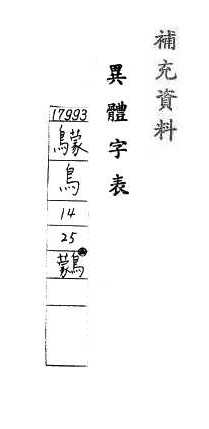 補充資料
異體字表
17993
鳥
14
25
鸏